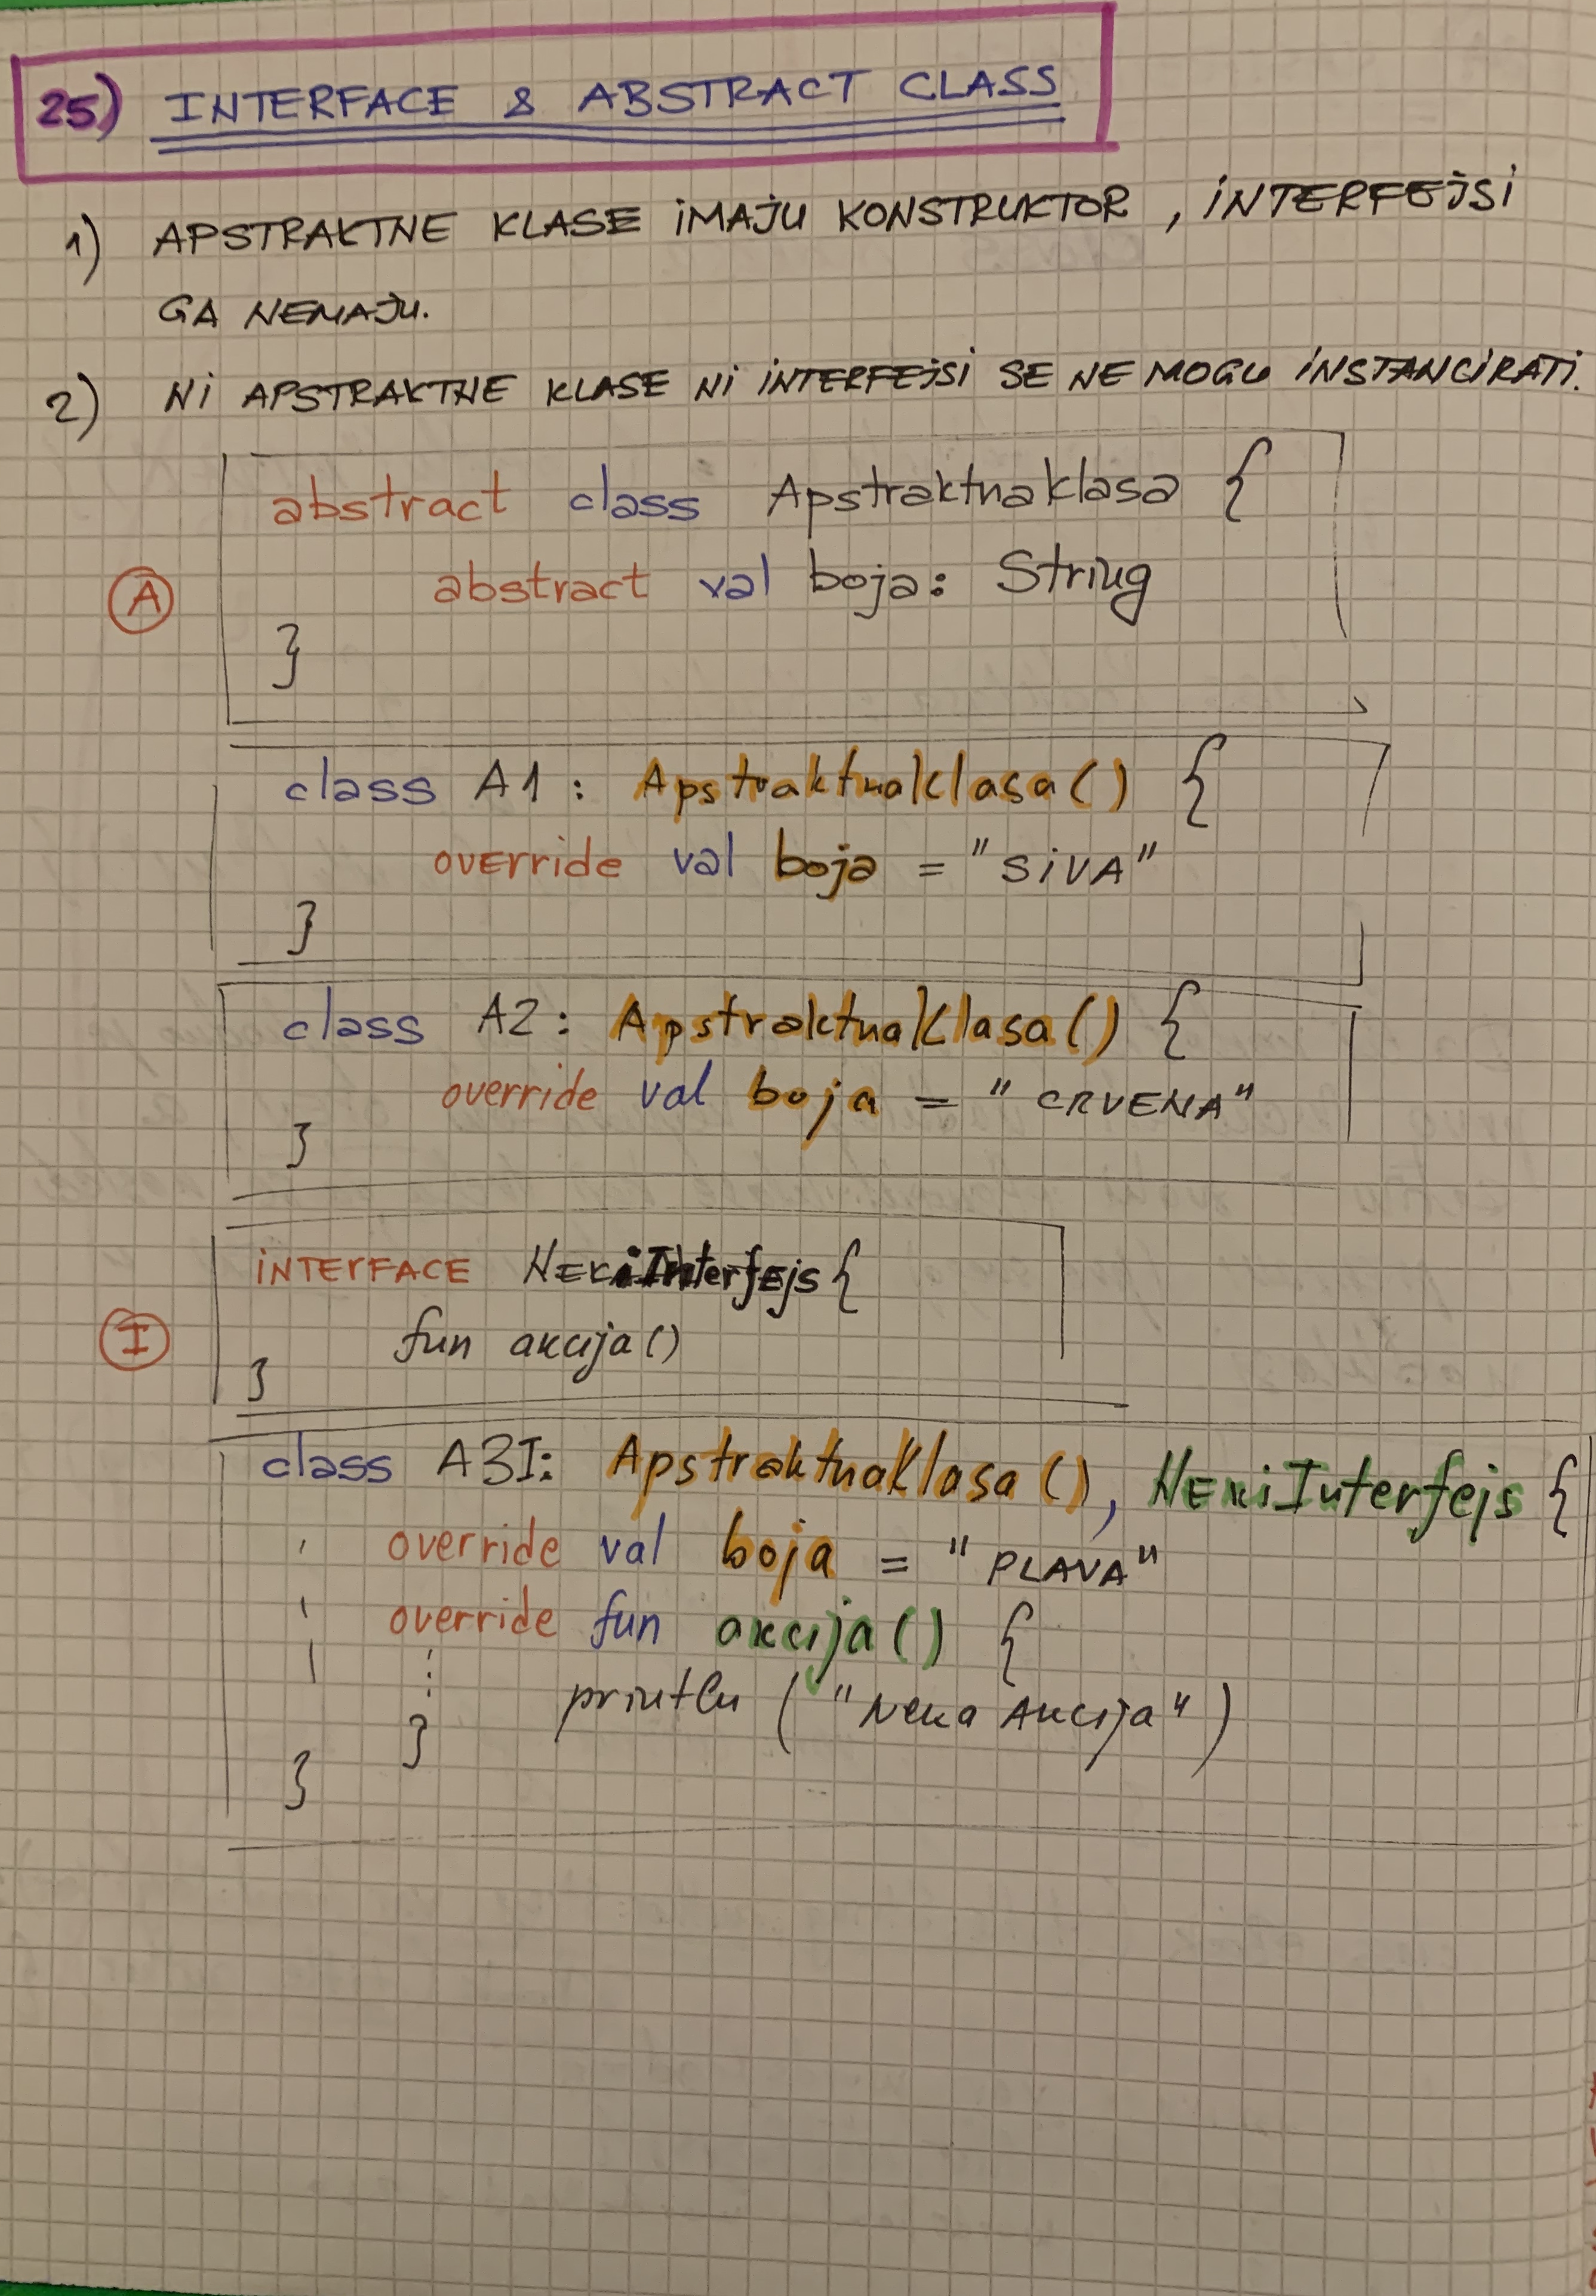 25) INTERFACE & ABSTRACT CLASS
1) APSTRAKTNE KLASE IMAJU KONSTRUKTOR, INTERFEJSI
GA NEMAJU.
2) NI APSTRAKTNE KLASE NI INTERFEJSI SE NE MOGU INSTANCIRATI.
abstract class ApstraktnaKlasa {
A abstract val boja: String
}
class A1 : ApstraktnaKlasa() {
override val boja = "SIVA"
}
class A2 : ApstraktnaKlasa() {
override val boja = "CRVENA"
}
INTERFACE NEKiInterfejs {
I fun akcija()
}
class A3I: ApstraktnaKlasa(), NEKiInterfejs {
override val boja = "PLAVA"
override fun akcija() {
println ("Neka Akcija")
}
}